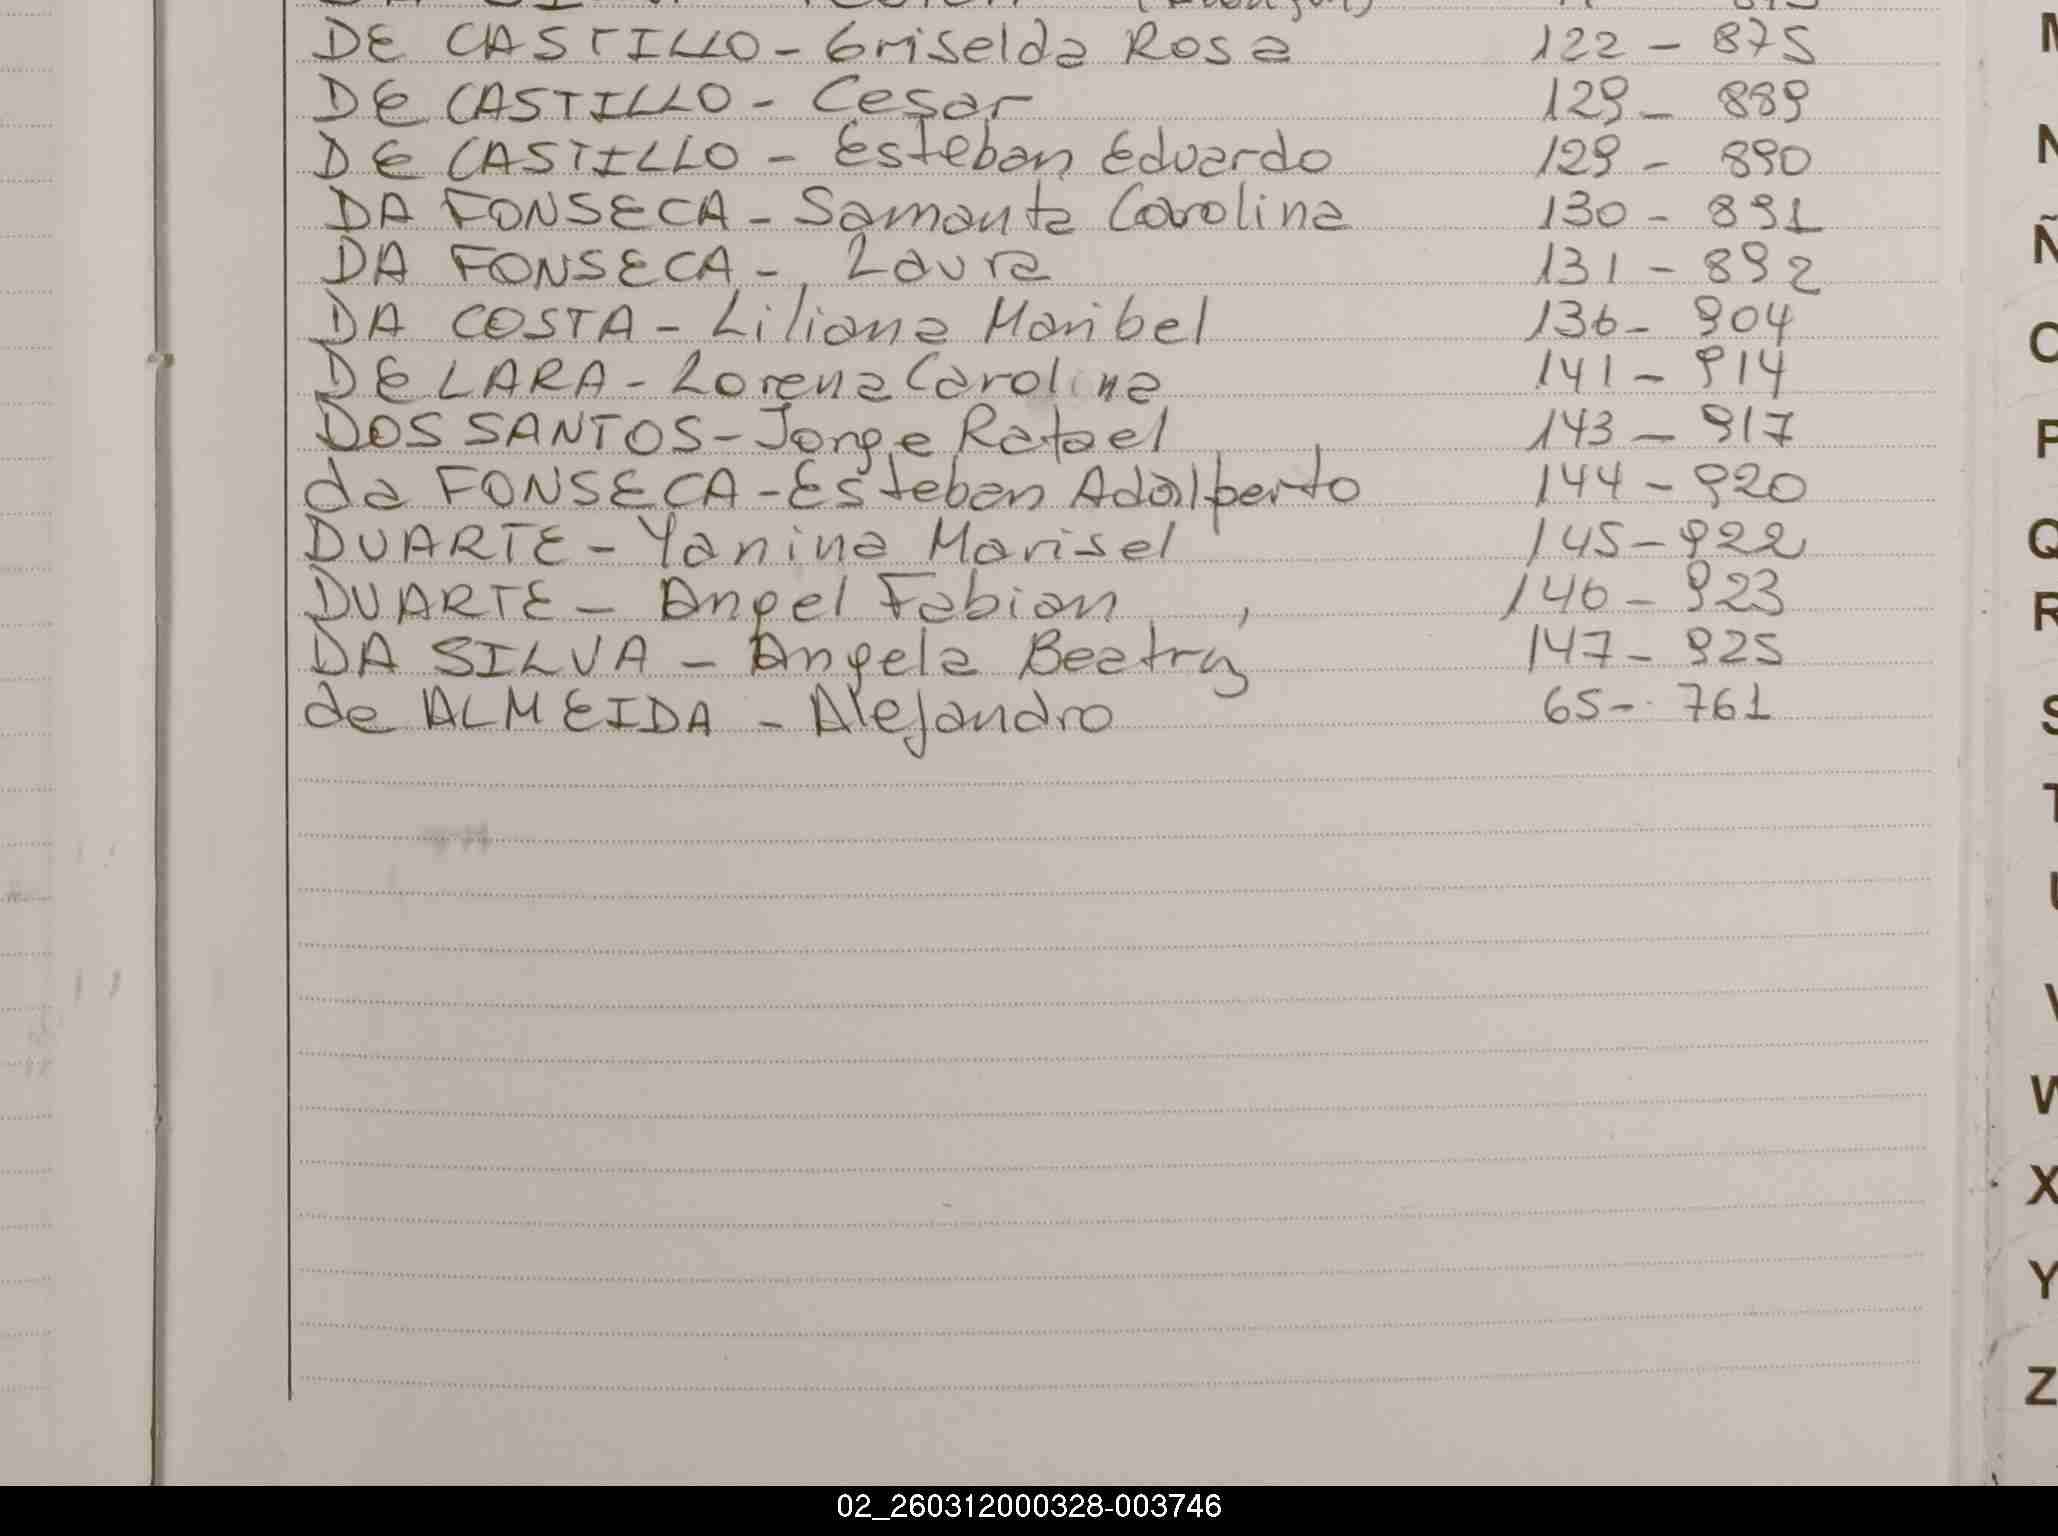 DE CASTILLO - Griselda Rosa 122 - 875
DE CASTILLO - Cesar 129 - 889
DE CASTILLO - Esteban Eduardo 129 - 890
DA FONSECA - Samanta Carolina 130 - 891
DA FONSECA - Laura 131 - 892
DA COSTA - Liliana Maribel 136 - 904
DE LARA - Lorena Carolina 141 - 914
DOS SANTOS - Jorge Rafael 143 - 917
da FONSECA - Esteban Adalberto 144 - 920
DUARTE - Yanina Marisel 145 - 922
DUARTE - Angel Fabian 146 - 923
DA SILVA - Angela Beatriz 147 - 925
de ALMEIDA - Alejandro 65 - 761
N
Ñ
O
P
Q
R
S
T
U
V
W
X
Y
Z
02_260312000328-003746